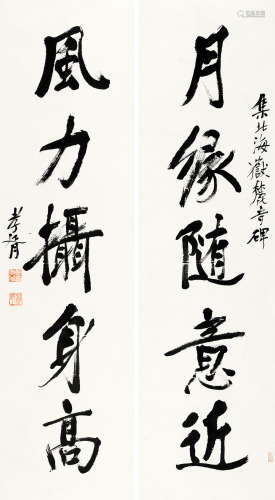 月緣隨意近
集北海嶽麓寺碑
風力攝身高
孝胥